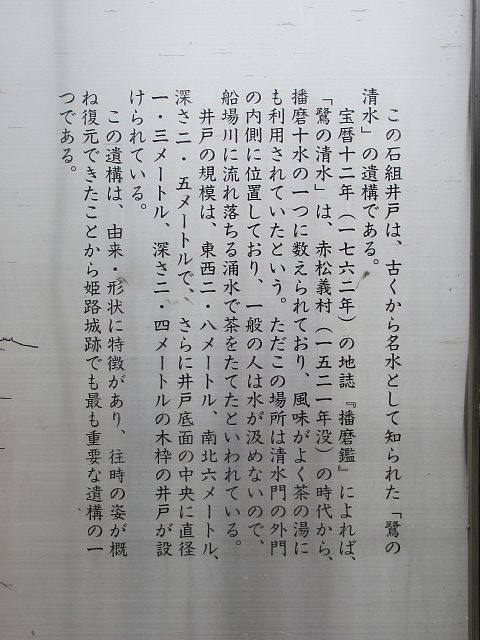 この石組井戸は、古くから名水として知られた「鷺の
清水」の遺構である。
宝暦十二年（一七六二年）の地誌『播磨鑑』によれば、
「鷺の清水」は、赤松義村（一五二一年没）の時代から、
播磨十水の一つに数えられており、風味がよく茶の湯に
も利用されていたという。ただこの場所は清水門の外門
の内側に位置しており、一般の人は水が汲めないので、
船場川に流れ落ちる涌水で茶をたてたといわれている。
井戸の規模は、東西二・八メートル、南北六メートル、
深さ二・五メートルで、さらに井戸底面の中央に直径
一・三メートル、深さ二・四メートルの木枠の井戸が設
けられている。
この遺構は、由来・形状に特徴があり、往時の姿が概
ね復元できたことから姫路城跡でも最も重要な遺構の一
つである。